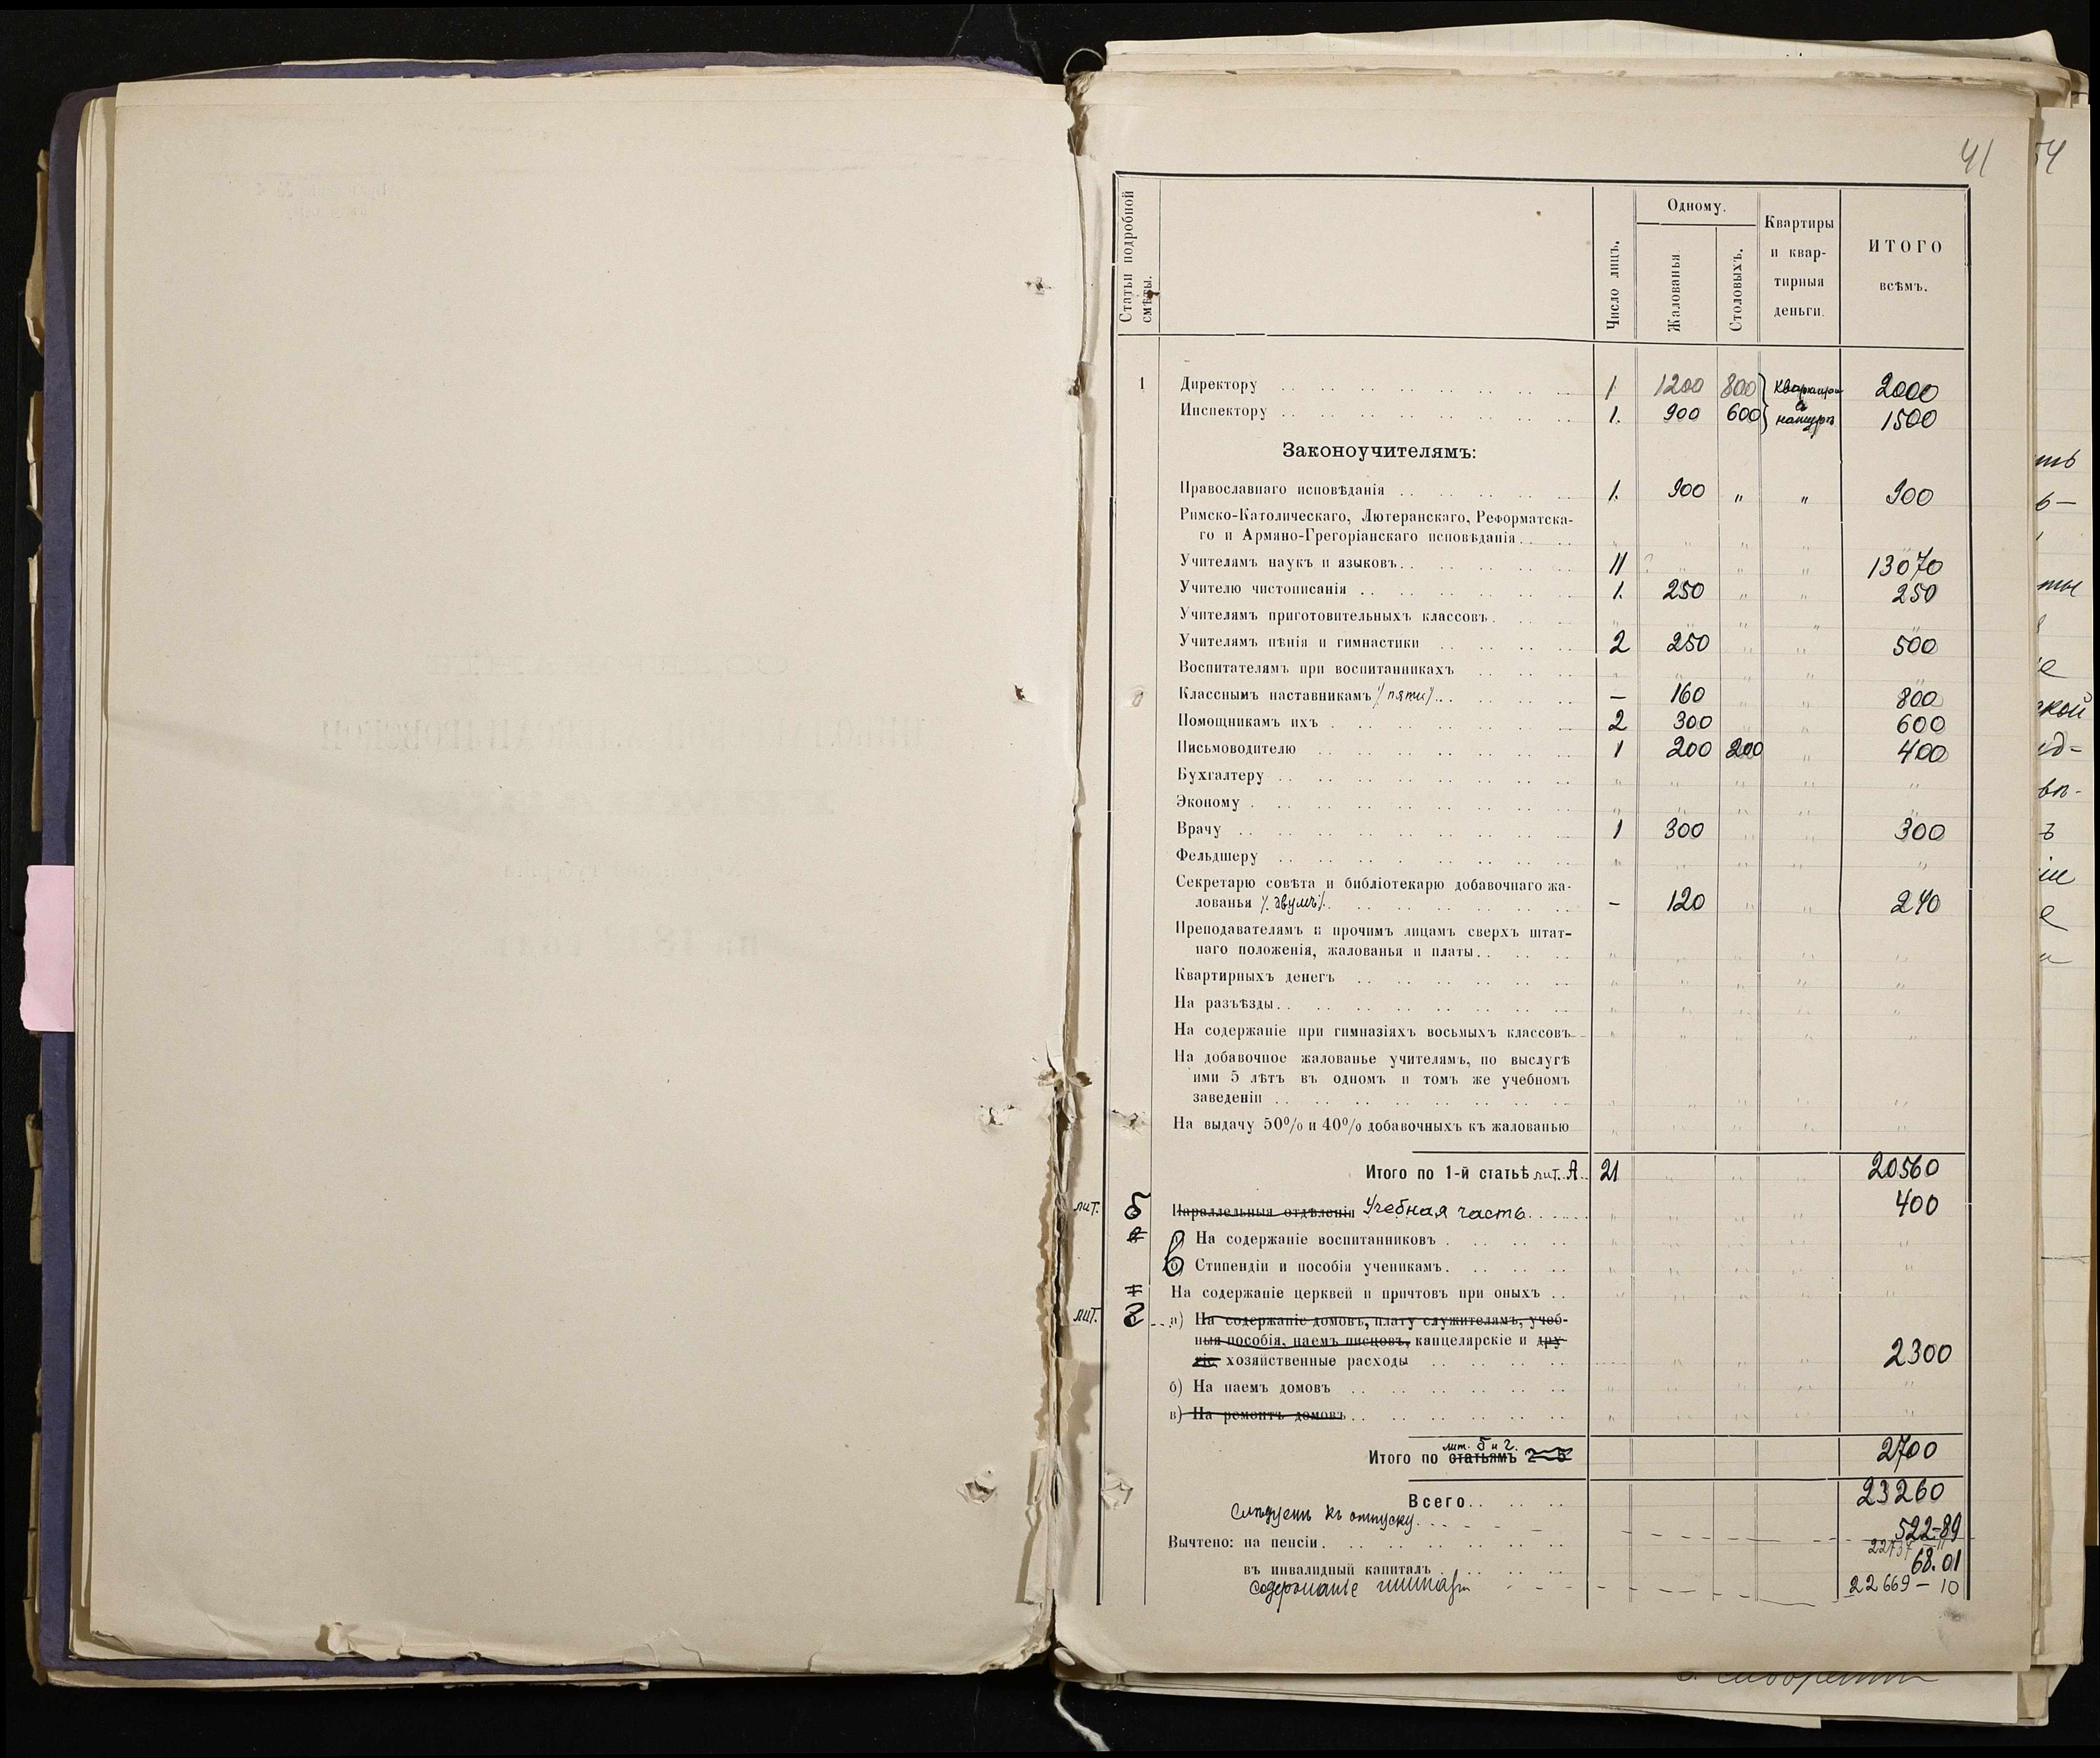 41
54
Статьи подробной смѣты.
Число лицъ.
Одному.
Жалованья
Столовыхъ.
Квартиры и квар-тирныя деньги.
ИТОГО всѣмъ.
1 Директору 1 1200 800 Квартирой 2000
въ
Инспектору 1. 900 600 натурѣ 1500
Законоучителямъ:
Православнаго исповѣданія 1. 900 „ „ 900
Римско-Католическаго, Лютеранскаго, Реформатска-
го и Армяно-Грегоріанскаго исповѣданія „ „ „ „ „
Учителямъ наукъ и языковъ 11 ? „ „ 13070
Учителю чистописанія 1. 250 „ „ 250
Учителямъ приготовительныхъ классовъ „ „ „ „ „
Учителямъ пѣнія и гимнастики 2 250 „ „ 500
Воспитателямъ при воспитанникахъ „ „ „ „ „
Класснымъ наставникамъ /пяти/ — 160 „ „ 800
Помощникамъ ихъ 2 300 „ „ 600
Письмоводителю 1 200 200 „ 400
Бухгалтеру „ „ „ „ „
Эконому „ „ „ „ „
Врачу 1 300 „ „ 300
Фельдшеру „ „ „ „ „
Секретарю совѣта и библіотекарю добавочнаго жа-
лованья /двумъ/ — 120 „ „ 240
Преподавателямъ и прочимъ лицамъ сверхъ штат-
наго положенія, жалованья и платы „ „ „ „ „
Квартирныхъ денегъ „ „ „ „ „
На разъѣзды „ „ „ „ „
На содержаніе при гимназіяхъ восьмыхъ классовъ „ „ „ „ „
На добавочное жалованье учителямъ, по выслугѣ
ими 5 лѣтъ въ одномъ и томъ же учебномъ
заведеніи „ „ „ „ „
На выдачу 50% и 40% добавочныхъ къ жалованью „ „ „ „ „
Итого по 1-й статьѣ лит. А. 21 „ „ „ 20560
лит. б Параллельныя отдѣленія Учебная часть „ „ „ „ 400
На содержаніе воспитанниковъ „ „ „ „ „
б) Стипендіи и пособія ученикамъ „ „ „ „ „
На содержаніе церквей и причтовъ при оныхъ „ „ „ „ „
лит. а) На содержаніе домовъ, плату служителямъ, учеб-
ныя пособія, наемъ писцовъ, канцелярскіе и дру-
гіе хозяйственные расходы „ „ „ 2300
б) На наемъ домовъ „ „ „ „ „
в) На ремонтъ домовъ „ „ „ „ „
лит. б и г.
Итого по статьямъ 2–5 2700
Всего 23260
Слѣдуетъ къ отпуску
522-89
Вычтено: на пенсіи
22737 11
въ инвалидный капиталъ 68.01
содержаніе 22669 — 10